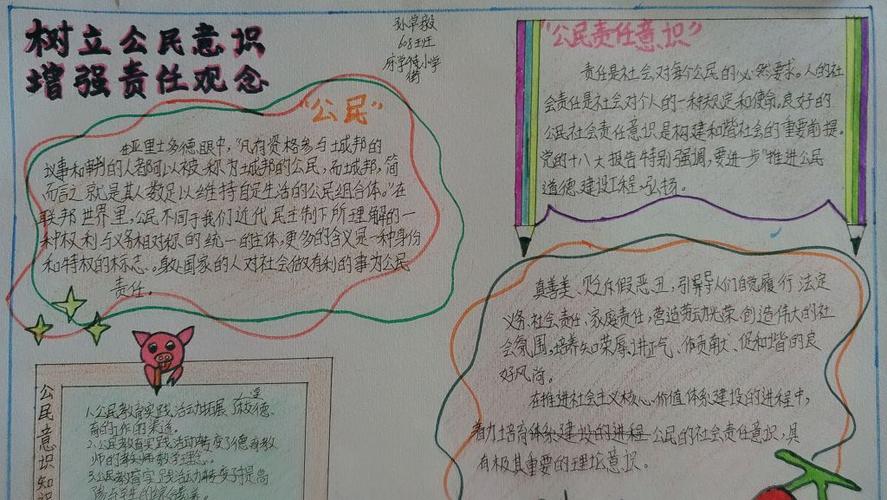 树立公民意识
增强责任观念
孙荣毅
608班
府学街小学
"公民"
在亚里士多德眼中,"凡有资格参与城邦的
议事和审判的人都可以被称为城邦的公民,而城邦,简
而言之就是其人数足以维持自足生活的公民组合体。"在
联邦世界里,公民不同于我们近代民主制下所理解的一
种权利与义务相对称的统一的主体,更多的含义是一种身份
和特权的标志。身处国家的人对社会做有利的事为公民
责任。
"公民责任意识"
责任是社会对每个公民的必然要求。人的社
会责任是社会对个人的一种规定和使命,良好的
公民社会责任意识是构建和谐社会的重要前提。
党的十八大报告特别强调,要进一步"推进公民
道德建设工程,弘扬。
真善美、贬斥假恶丑,引导人们自觉履行法定
义务、社会责任、家庭责任,营造劳动光荣、创造伟大的社
会氛围,培养知荣辱、讲正气、作贡献、促和谐的良
好风尚。
在推进社会主义核心价值体系建设的进程中,
着力培育体系建设的进程公民的社会责任意识,具
有极其重要的理论意识。
公民意识知识
1.公民教育实践活动拓展了校德
育的工作的渠道。
2.公民教育实践活动转变了德育教
师的教师教学理念。
3.公民教育实践活动转变了提高